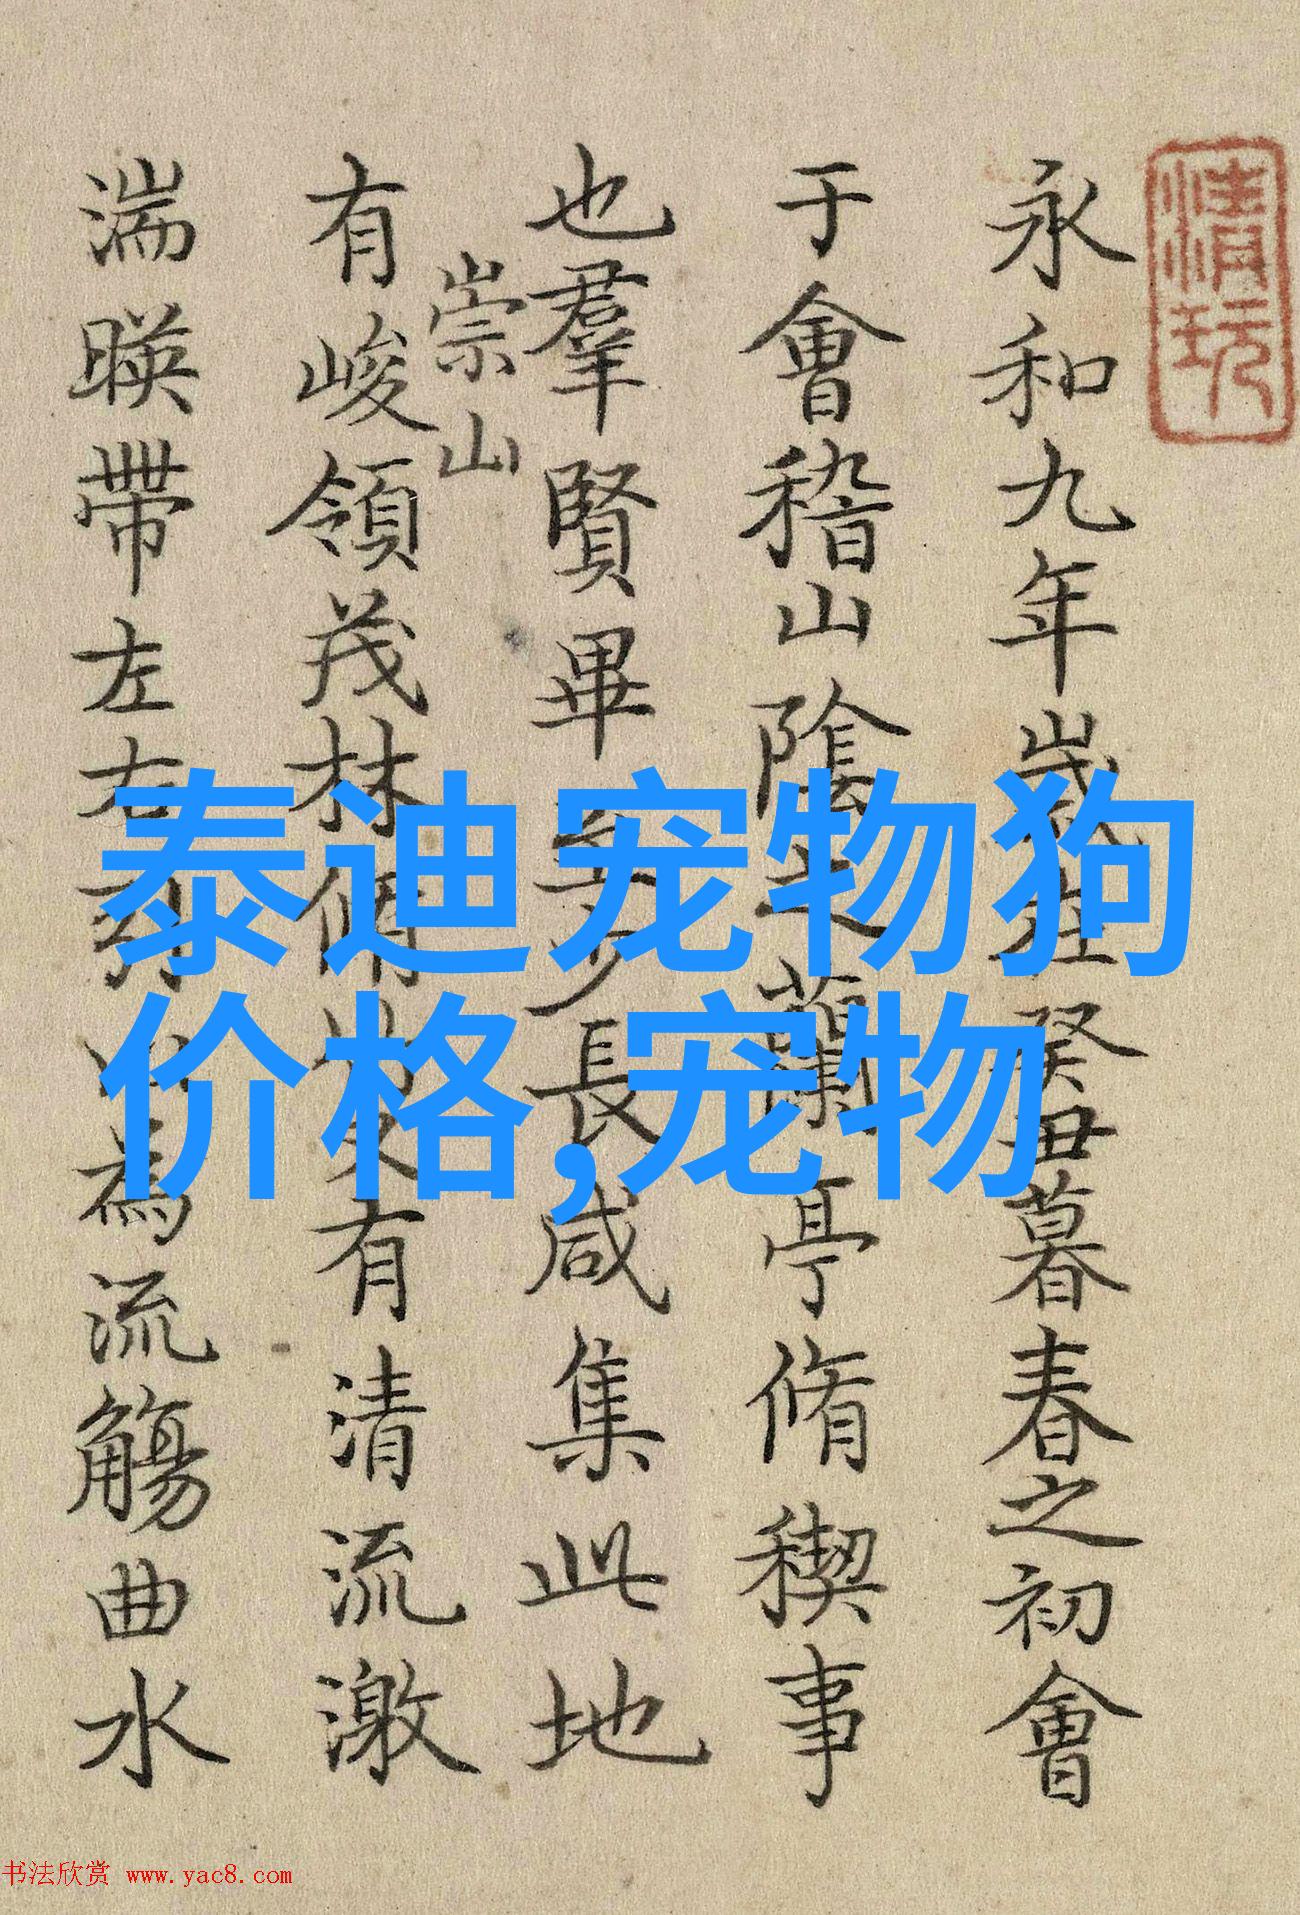 清玩
永和九年歲在癸丑暮春之初會
于會稽山陰之蘭亭脩稧事
也羣賢畢至少長咸集此地
崇山
有峻領茂林脩竹又有清流激
湍暎帶左右引以為流觴曲水
泰迪宠物狗
价格,宠物
书法欣赏 www.yac8.com